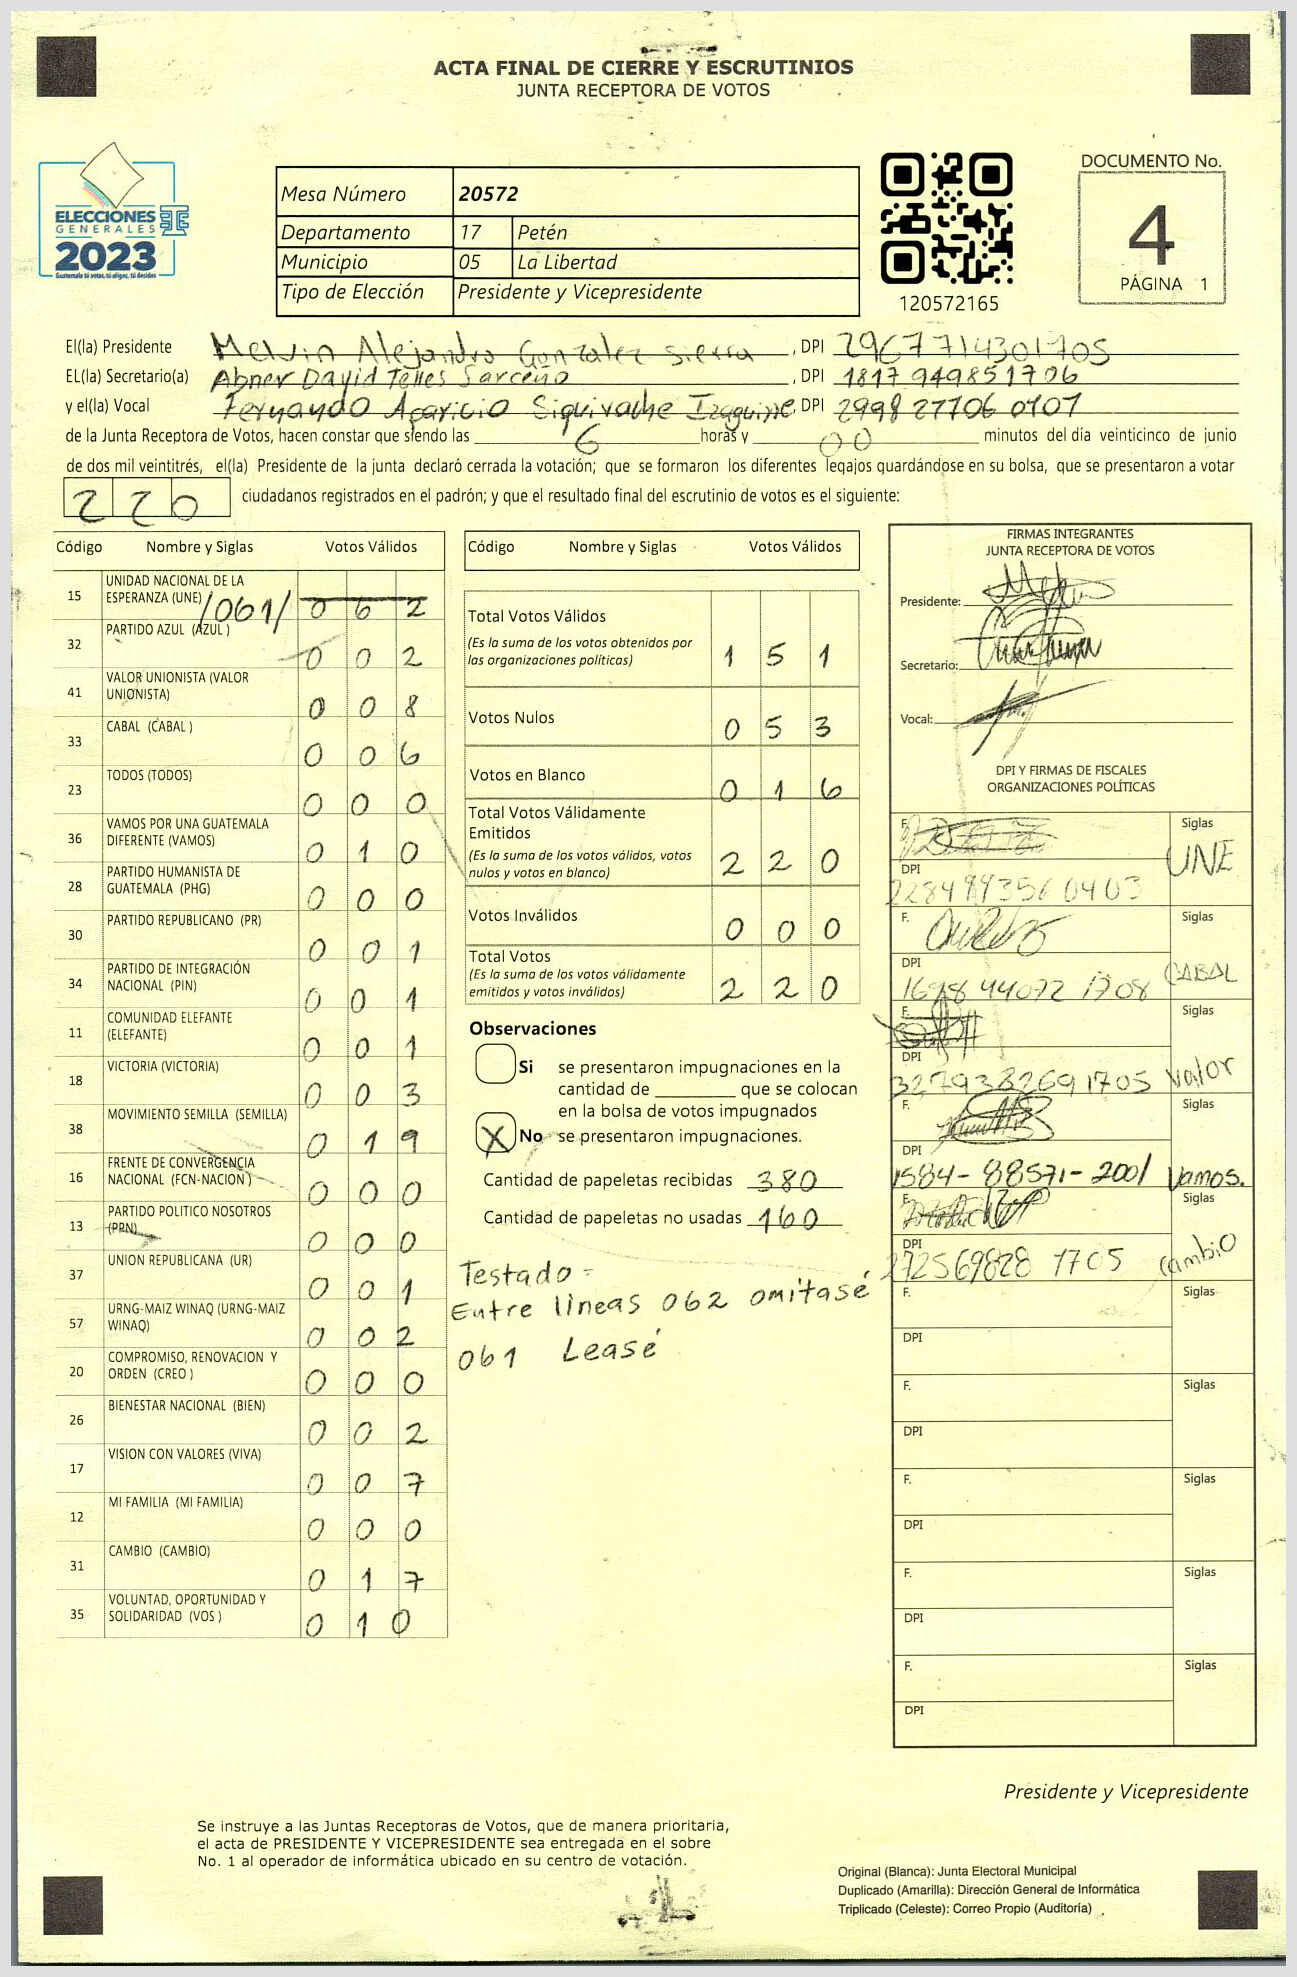 ACTA FINAL DE CIERRE Y ESCRUTINIOS
JUNTA RECEPTORA DE VOTOS
ELECCIONES
GENERALES
2023
Guatemala tú votas, tú eliges, tú decides
Mesa Número 20572
Departamento 17 Petén
Municipio 05 La Libertad
Tipo de Elección Presidente y Vicepresidente
120572165
DOCUMENTO No.
4
PÁGINA 1
El(la) Presidente Melvin Alejandro Gonzalez Sierra, DPI 2967714301705
EL(la) Secretario(a) Abner David Telles Sarceño, DPI 1817 949851706
y el(la) Vocal Fernando Aparicio Siquivache Izaguirre, DPI 2998 27706 0707
de la Junta Receptora de Votos, hacen constar que siendo las 6 horas y 00 minutos del día veinticinco de junio
de dos mil veintitrés, el(la) Presidente de la junta declaró cerrada la votación; que se formaron los diferentes legajos guardándose en su bolsa, que se presentaron a votar
220 ciudadanos registrados en el padrón; y que el resultado final del escrutinio de votos es el siguiente:
Código Nombre y Siglas Votos Válidos
15 UNIDAD NACIONAL DE LA
ESPERANZA (UNE) /061/ 062
32 PARTIDO AZUL (AZUL ) 002
41 VALOR UNIONISTA (VALOR
UNIONISTA) 008
33 CABAL (CABAL ) 006
23 TODOS (TODOS) 000
36 VAMOS POR UNA GUATEMALA
DIFERENTE (VAMOS) 010
28 PARTIDO HUMANISTA DE
GUATEMALA (PHG) 000
30 PARTIDO REPUBLICANO (PR) 001
34 PARTIDO DE INTEGRACIÓN
NACIONAL (PIN) 001
11 COMUNIDAD ELEFANTE
(ELEFANTE) 001
18 VICTORIA (VICTORIA) 003
38 MOVIMIENTO SEMILLA (SEMILLA) 019
16 FRENTE DE CONVERGENCIA
NACIONAL (FCN-NACION ) 000
13 PARTIDO POLITICO NOSOTROS
(PPN) 000
37 UNION REPUBLICANA (UR) 001
57 URNG-MAIZ WINAQ (URNG-MAIZ
WINAQ) 002
20 COMPROMISO, RENOVACION Y
ORDEN (CREO ) 000
26 BIENESTAR NACIONAL (BIEN) 002
17 VISION CON VALORES (VIVA) 007
12 MI FAMILIA (MI FAMILIA) 000
31 CAMBIO (CAMBIO) 017
35 VOLUNTAD, OPORTUNIDAD Y
SOLIDARIDAD (VOS ) 010
Código Nombre y Siglas Votos Válidos
Total Votos Válidos
(Es la suma de los votos obtenidos por
las organizaciones políticas) 151
Votos Nulos 053
Votos en Blanco 016
Total Votos Válidamente
Emitidos
(Es la suma de los votos válidos, votos
nulos y votos en blanco) 220
Votos Inválidos 000
Total Votos
(Es la suma de los votos válidamente
emitidos y votos inválidos) 220
Observaciones
Si se presentaron impugnaciones en la
cantidad de ________ que se colocan
en la bolsa de votos impugnados
X No se presentaron impugnaciones.
Cantidad de papeletas recibidas 380
Cantidad de papeletas no usadas 160
Testado =
Entre líneas 062 omitasé
061 Leasé
FIRMAS INTEGRANTES
JUNTA RECEPTORA DE VOTOS
Presidente:
Secretario:
Vocal:
DPI Y FIRMAS DE FISCALES
ORGANIZACIONES POLÍTICAS
F. Siglas
UNE
DPI
2284994356 0403
F. Siglas
DPI CABAL
1698 44072 1708
F. Siglas
DPI
3279382691705 Valor
F. Siglas
DPI
1584-88571-2001 Vamos.
F. Siglas
DPI
272569828 1705 cambio
F. Siglas
DPI
F. Siglas
DPI
F. Siglas
DPI
F. Siglas
DPI
F. Siglas
DPI
Presidente y Vicepresidente
Se instruye a las Juntas Receptoras de Votos, que de manera prioritaria,
el acta de PRESIDENTE Y VICEPRESIDENTE sea entregada en el sobre
No. 1 al operador de informática ubicado en su centro de votación.
Original (Blanca): Junta Electoral Municipal
Duplicado (Amarilla): Dirección General de Informática
Triplicado (Celeste): Correo Propio (Auditoría)